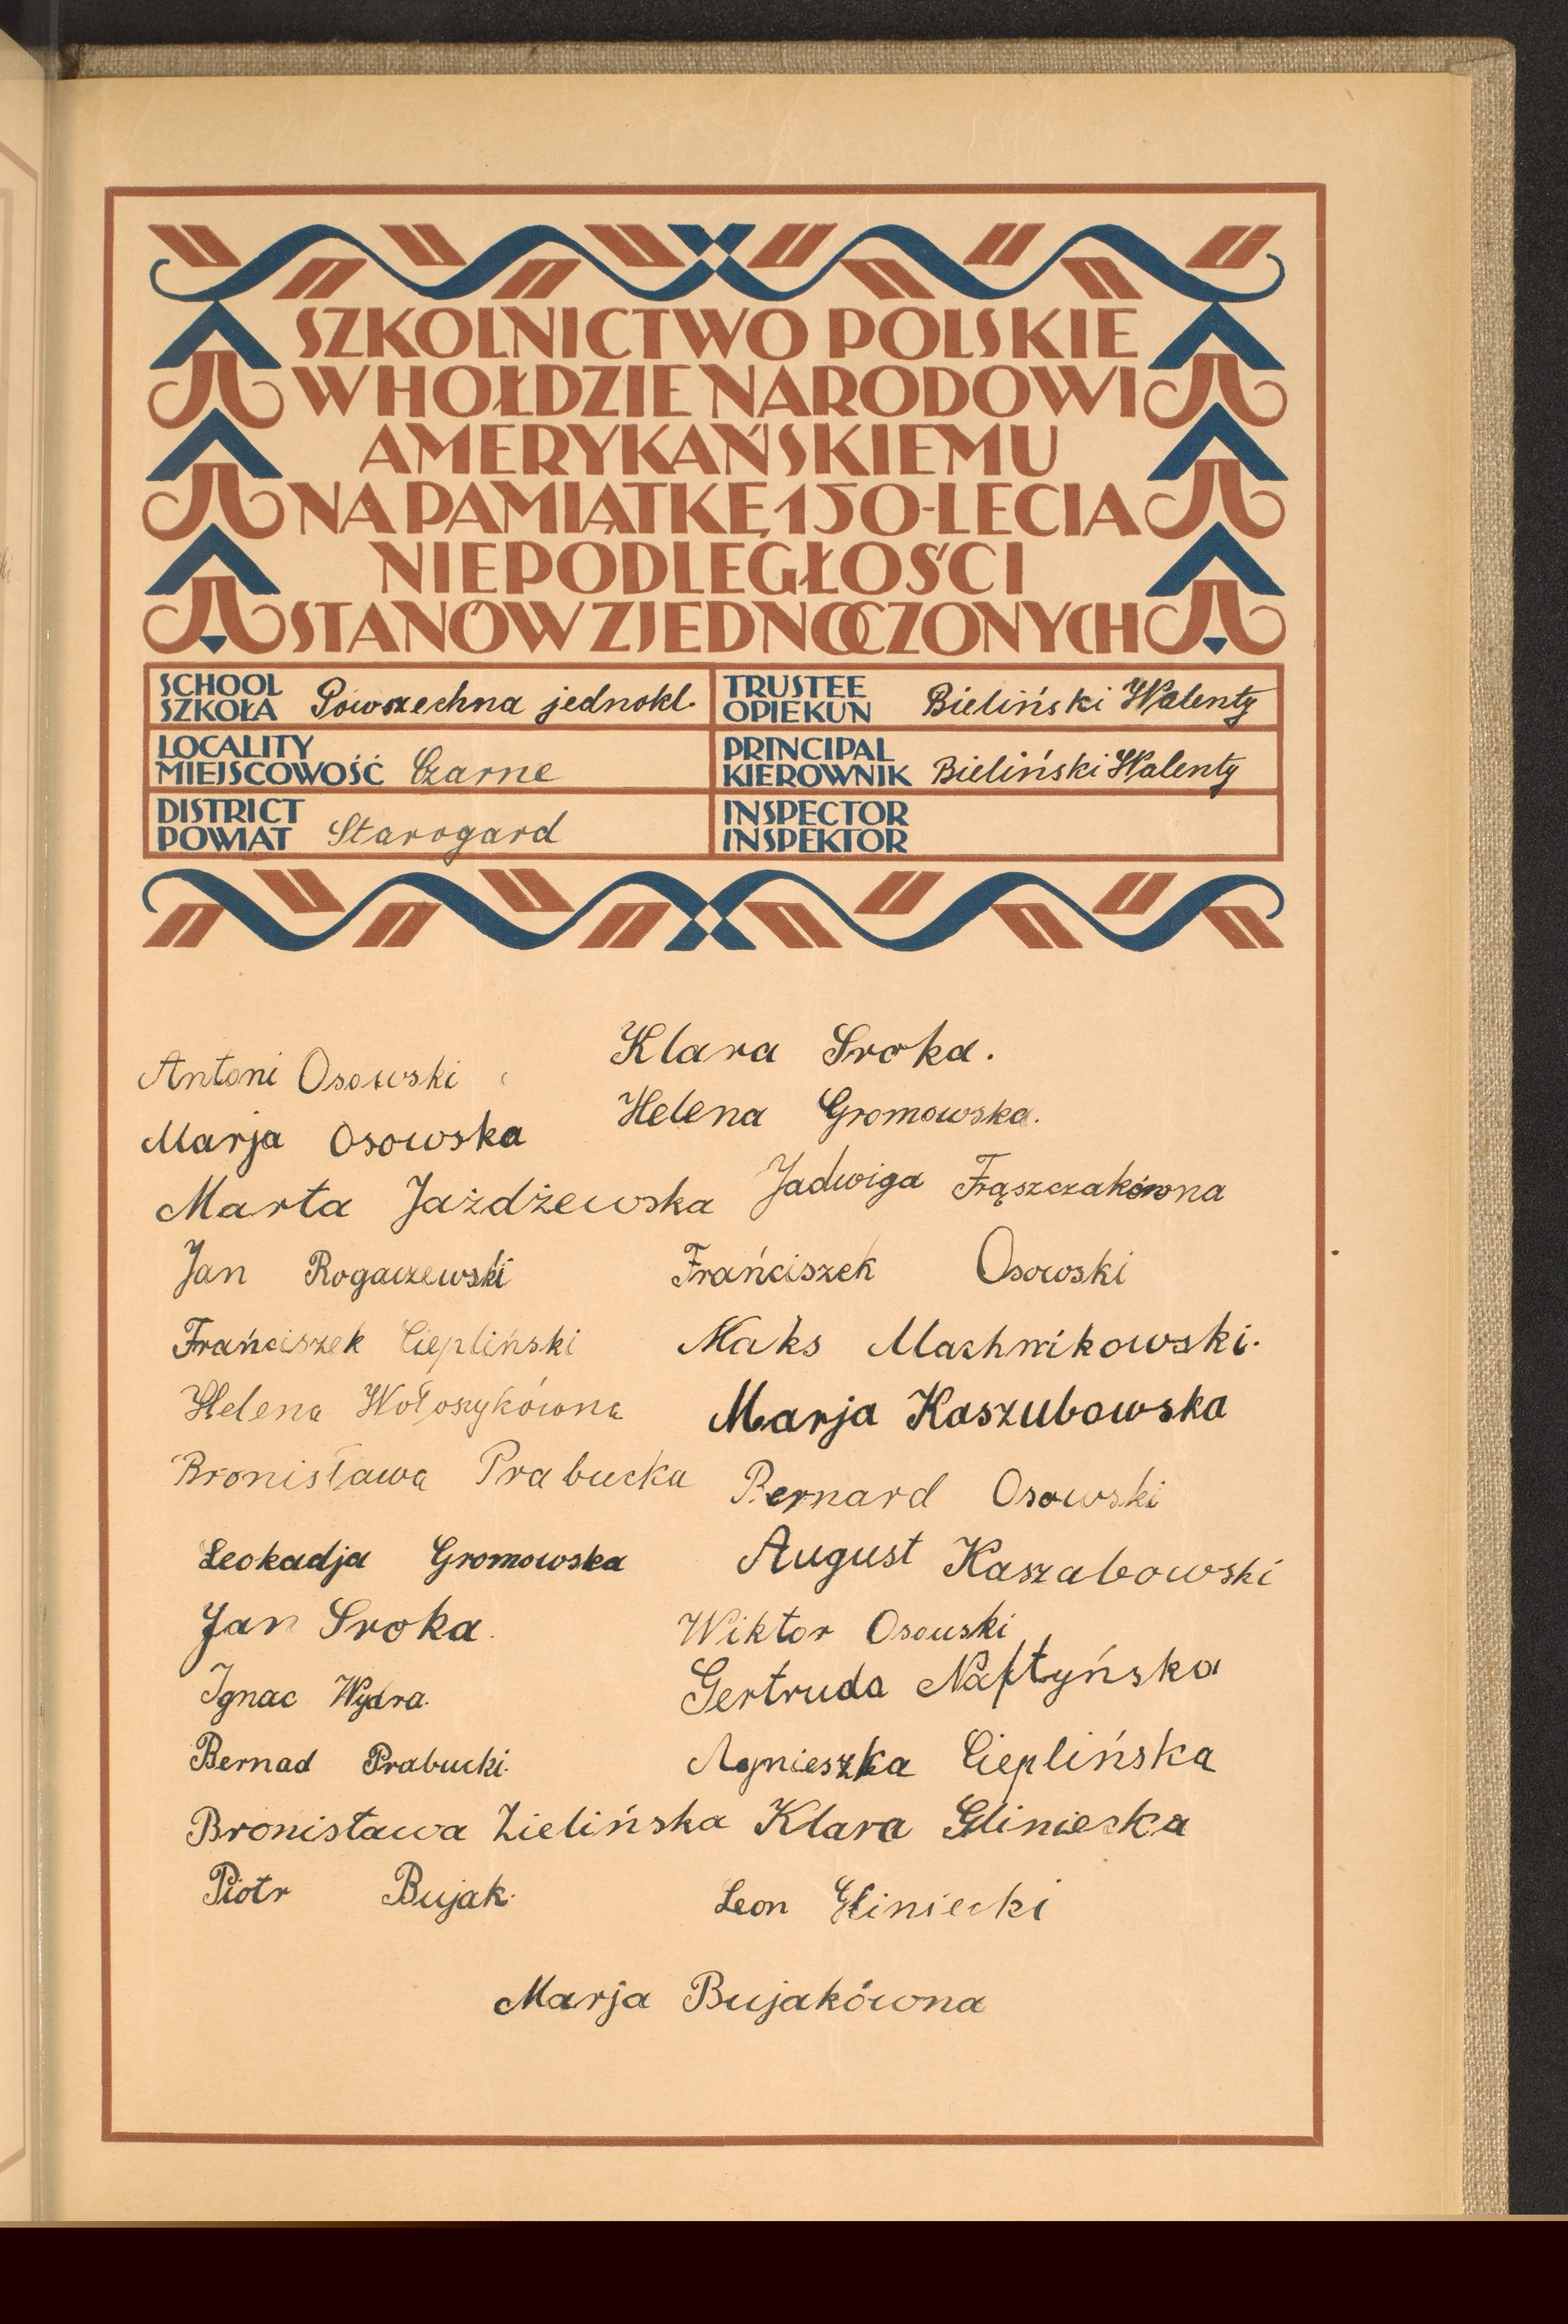 SZKOLNICTWO POLSKIE
W HOŁDZIE NARODOWI
AMERYKAŃSKIEMU
NA PAMIĄTKĘ 150-LECIA
NIEPODLEGŁOŚCI
STANÓW ZJEDNOCZONYCH
SCHOOL
SZKOŁA Powszechna jednokl.
TRUSTEE
OPIEKUN Bieliński Walenty
LOCALITY
MIEJSCOWOŚĆ Czarne
PRINCIPAL
KIEROWNIK Bieliński Walenty
DISTRICT
POWIAT Starogard
INSPECTOR
INSPEKTOR
Antoni Osowski
Marja Osowska
Marta Jażdżewska
Jan Rogaczewski
Frańciszek Ciepliński
Helena Wołoszykówna
Bronisława Prabucka
Leokadja Gromowska
Jan Sroka.
Ignac Wydra.
Bernad Prabucki.
Bronisława Zielińska
Piotr Bujak.
Klara Sroka.
Helena Gromowska.
Jadwiga Frąszczakówna
Frańciszek Osowski
Maks
Marja Kaszubowska
Bernard Osowski
August Kaszabowski
Wiktor Osouski
Gertruda Naftyńska
Agnieszka Cieplińska
Klara Gliniecka
Leon Gliniecki
Marja Bujakówna